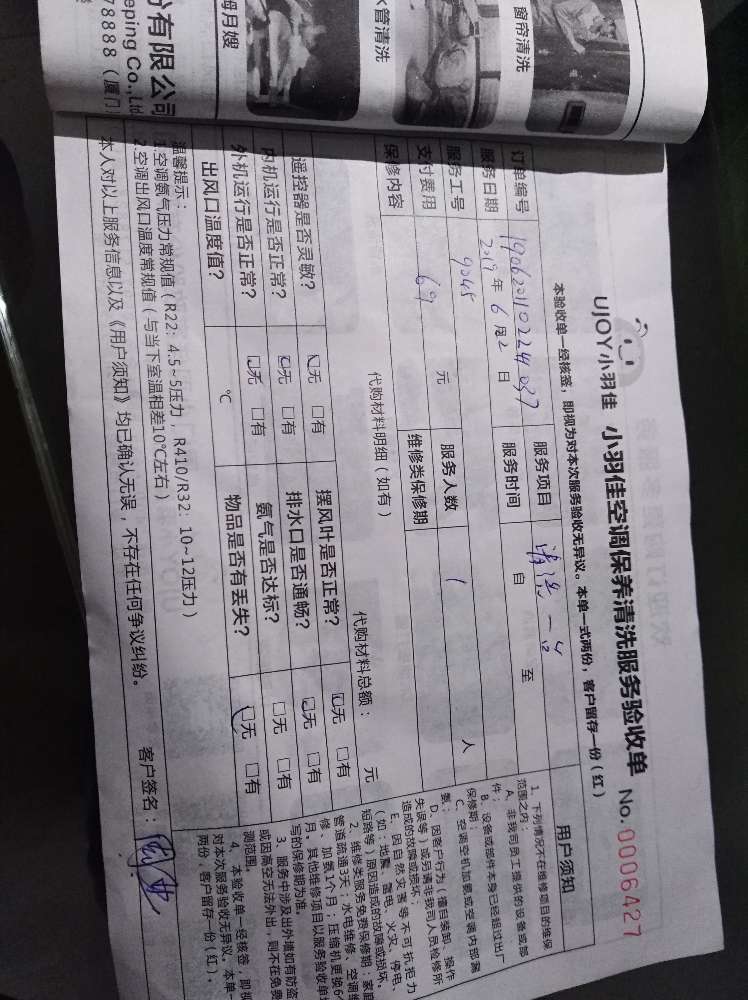 份有限公司
eping Co.,Ltd
78888（厦门
月嫂
水管清洗
窗帘清洗
UJOY小羽佳 小羽佳空调保养清洗服务验收单 No. 0006427
本验收单一经核签，即视为对本次服务验收无异议。本单一式两份，客户留存一份（红）
订单编号 服务项目 清洗一台
服务日期 2019年6月2日 服务时间 自 至
服务工号 9045 服务人数 1 人
支付费用 69 元 维修类保修期
保修内容
代购材料明细（如有） 代购材料总额： 元
遥控器是否灵敏？ 无 有 摆风叶是否正常？ 无 有
内机运行是否正常？ 无 有 排水口是否通畅？ 无 有
外机运行是否正常？ 无 有 氨气是否达标？ 无 有
出风口温度值？ ℃ 物品是否有丢失？ 无 有
温馨提示：
1.空调氨气压力常规值（R22：4.5~5压力，R410/R32：10~12压力）
2.空调出风口温度常规值（与当下室温相差10℃左右）
本人对以上服务信息以及《用户须知》均已确认无误，不存在任何争议纠纷。 客户签名：
用户须知
1、下列情况不在维修项目的维保
范围之内：
A、非我司员工提供的设备或部
件；
B、设备或部件本身已经超过出厂
保修期；
C、空调空机加氨或空调内部漏
氨；
D、因客户行为（擅自装卸、操作
失误等）或另请非我司人员检修所
造成的故障或损坏；
E、因自然灾害等不可抗拒力
（如：地震、雷电、火灾、停电、
短路等）原因造成的故障或损坏。
2、维修类服务免费保修期：家庭
管道疏通3天；水电维修、空调维
修、加氨1个月；压缩机更换6个
月，其他维修项目以服务验收单填
写的保修期为准。
3、服务中涉及出外墙如有防盗
或因高空无法外出，则不在免费
测范围。
4、本验收单一经核签，即视
对本次服务验收无异议。本单一
两份，客户留存一份（红）。